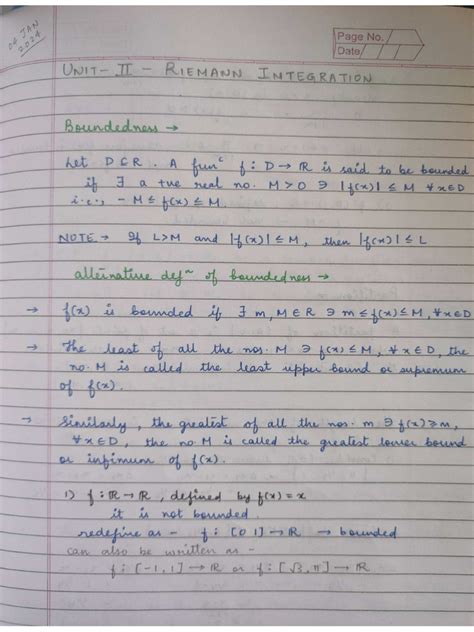 04 JAN
2024
Page No.
Date
UNIT - II - RIEMANN INTEGRATION
Boundedness →
Let D ⊆ R. A funᶜ f : D → ℝ is said to be bounded
if ∃ a +ve real no. M > 0 ∋ |f(x)| ≤ M ∀ x ∈ D
i.e., - M ≤ f(x) ≤ M.
NOTE → If L > M and |f(x)| ≤ M, then |f(x)| ≤ L
alternative defⁿ of boundedness →
→ f(x) is bounded if ∃ m, M ∈ R ∋ m ≤ f(x) ≤ M, ∀ x ∈ D
→ The least of all the nos. M ∋ f(x) ≤ M, ∀ x ∈ D, the
no. M is called the least upper bound or supremum
of f(x).
→ Similarly, the greatest of all the nos. m ∋ f(x) ≥ m,
∀ x ∈ D, the no. M is called the greatest lower bound
or infimum of f(x).
1) f : ℝ → ℝ, defined by f(x) = x
it is not bounded.
redefine as - f : [0 1] → ℝ → bounded
can also be written as -
f : [-1, 1] → ℝ or f : [√3, π] → ℝ